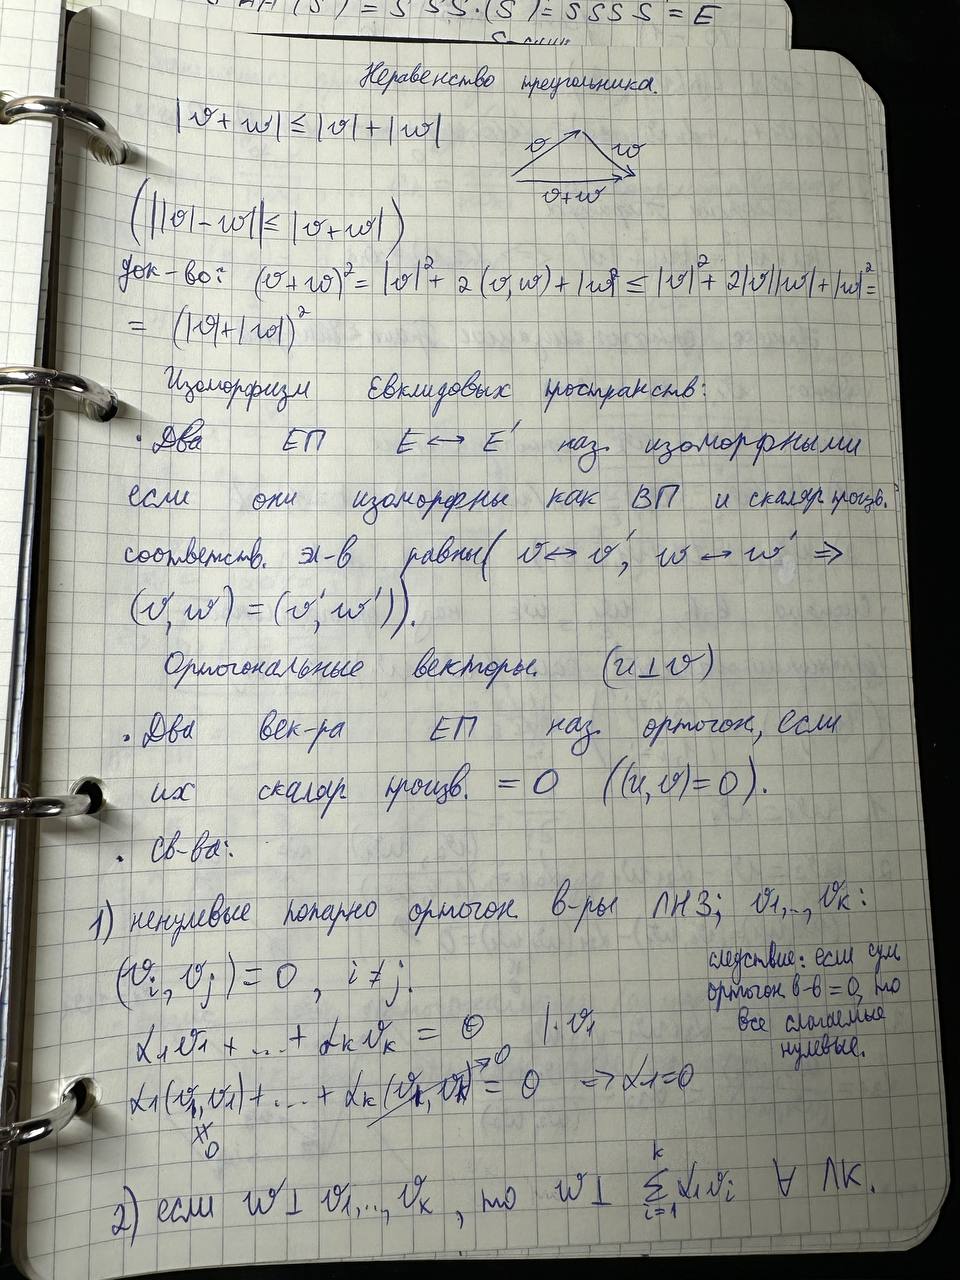 Неравенство треугольника.
|v+w| ≤ |v| + |w|
v w
v+w
(||v|-|w|| ≤ |v+w|)
Док-во: (v+w)² = |v|² + 2(v,w) + |w|² ≤ |v|² + 2|v||w| + |w|² =
= (|v|+|w|)²
Изоморфизм Евклидовых пространств:
· Два ЕП E ↔ E' наз. изоморфными
если они изоморфны как ВП и скаляр произв.
соответств. эл-в равны ( v ↔ v', w ↔ w' ⇒
(v, w) = (v', w')).
Ортогональные векторы. (u⊥v)
· Два век-ра ЕП наз. ортогон, если
их скаляр произв. = 0 ((u,v)=0).
· Св-ва:
1) ненулевые попарно ортогон. в-ры ЛНЗ; v₁,..,vₖ:
(vᵢ, vⱼ) = 0, i ≠ j.
следствие: если сум
ортогон в-в = 0, то
все слагаемые
нулевые.
α₁v₁ + ... + αₖvₖ = 0 | · v₁
α₁(v₁,v₁) + ... + αₖ(v₁, vₖ)→0 = 0 ⇒ α₁=0
≠
0
2) если w⊥v₁,..,vₖ, то w⊥ ∑ᵢ₌₁ᵏ αᵢvᵢ ∀ ЛК.